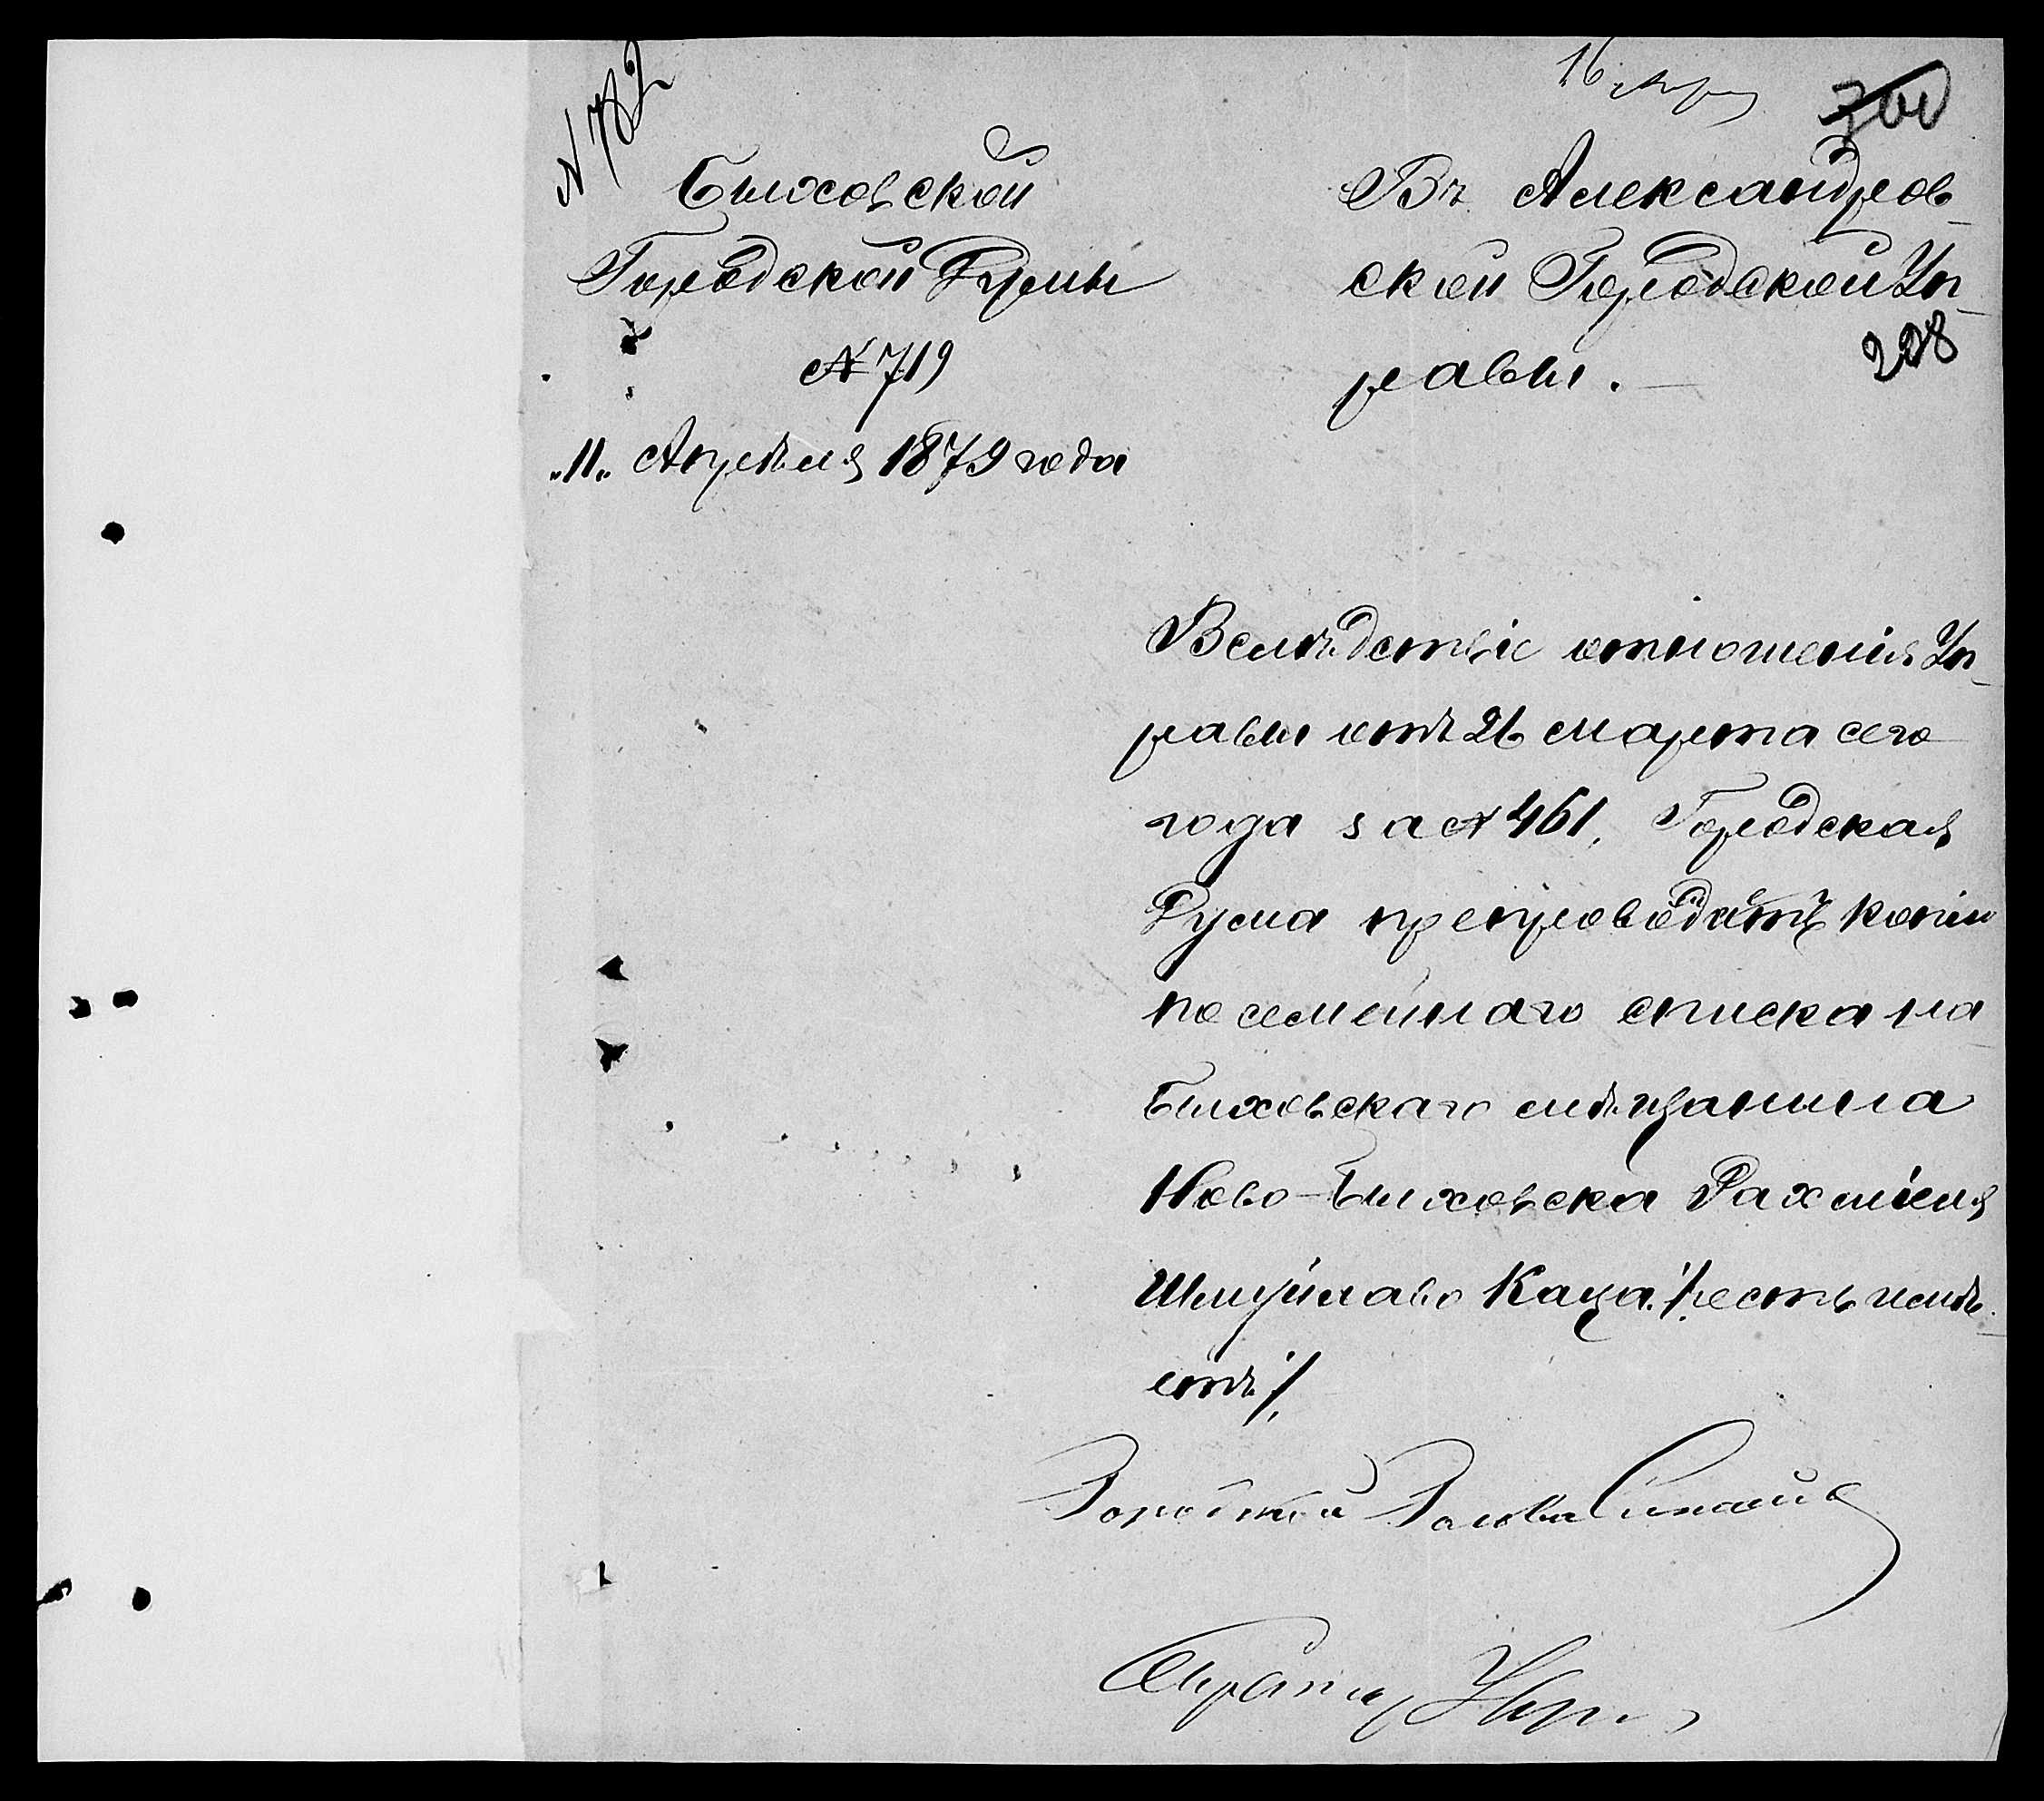 N 782
16 Апр
300
Быховской
Городской Думы
N 719
„11„ Апрѣля 1879 года
Въ Александров-
ской Городской Уп-
равы.
208
Вслѣдствіе отношенія Уп-
равы отъ 26 марта сего
года за N 461, Городская
Дума препроводитъ копію
посемейнаго списка на
Быховскаго мѣщанина
Ново-Быховска Рахміеля
Шмуйлаво Каца /: честь имѣ-
етъ :/
Городской Голова
Секретарь